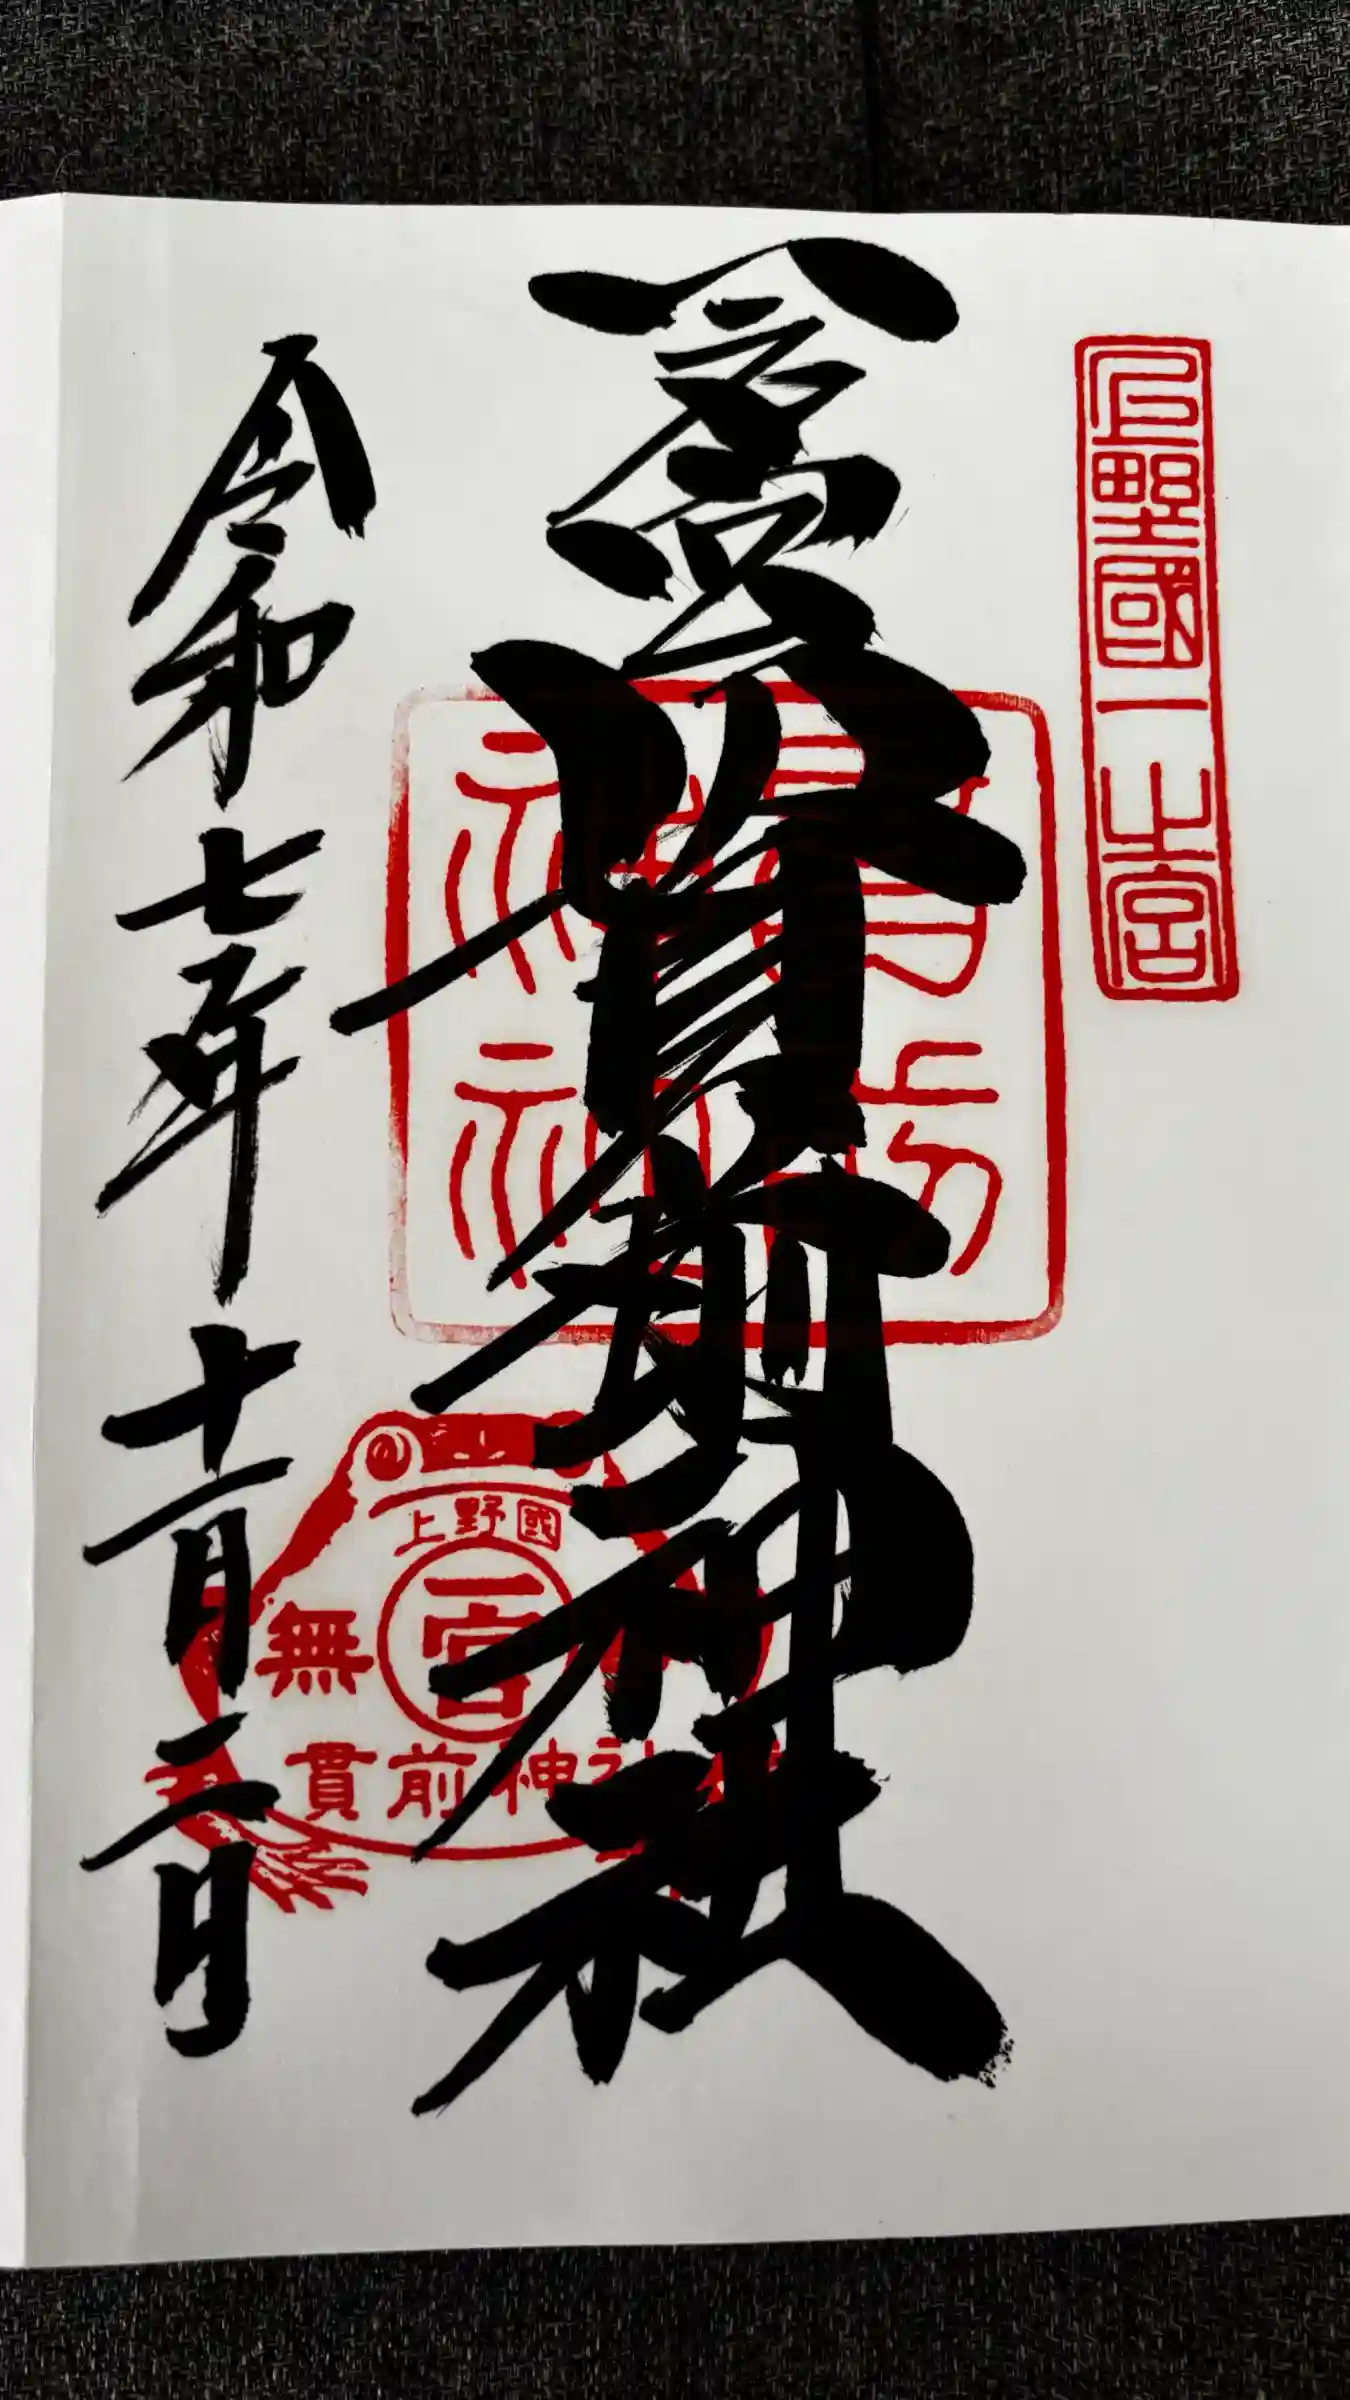 上野國一之宮
一之宮貫前神社
令和七年十一月二日
上野國
一宮
無
貫前神社